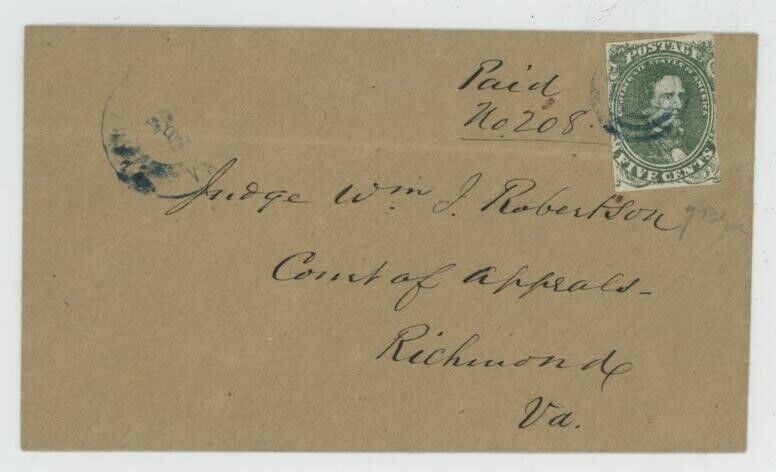 POSTAGE
CONFEDERATE STATES OF AMERICA
FIVE CENTS
Paid
No. 208.
VA
Judge Wm J. Robertson
Court of Appeals-
Richmond
Va.